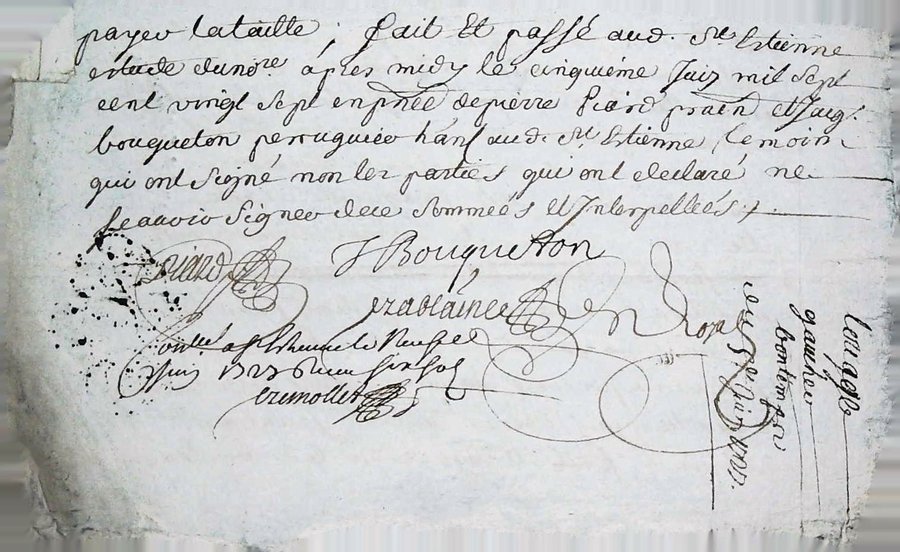 payer lataille ; fait Et passé aud. St Estienne
estude dunore après midy le cinquiéme Juin mil sept
cent vingt sept enpnce depierre Picard praen et Jacq.
bouqueton perruquier hant aud. St Estienne temoins
qui ont signé non les parties qui ont declaré ne
scavoir signer dece sommeés et Interpelleés
picard
J Bouqueton
Royal
a St Estienne le
Juin 1727 six sols
louage
gautier
bontemps
du 5e Juin 1727